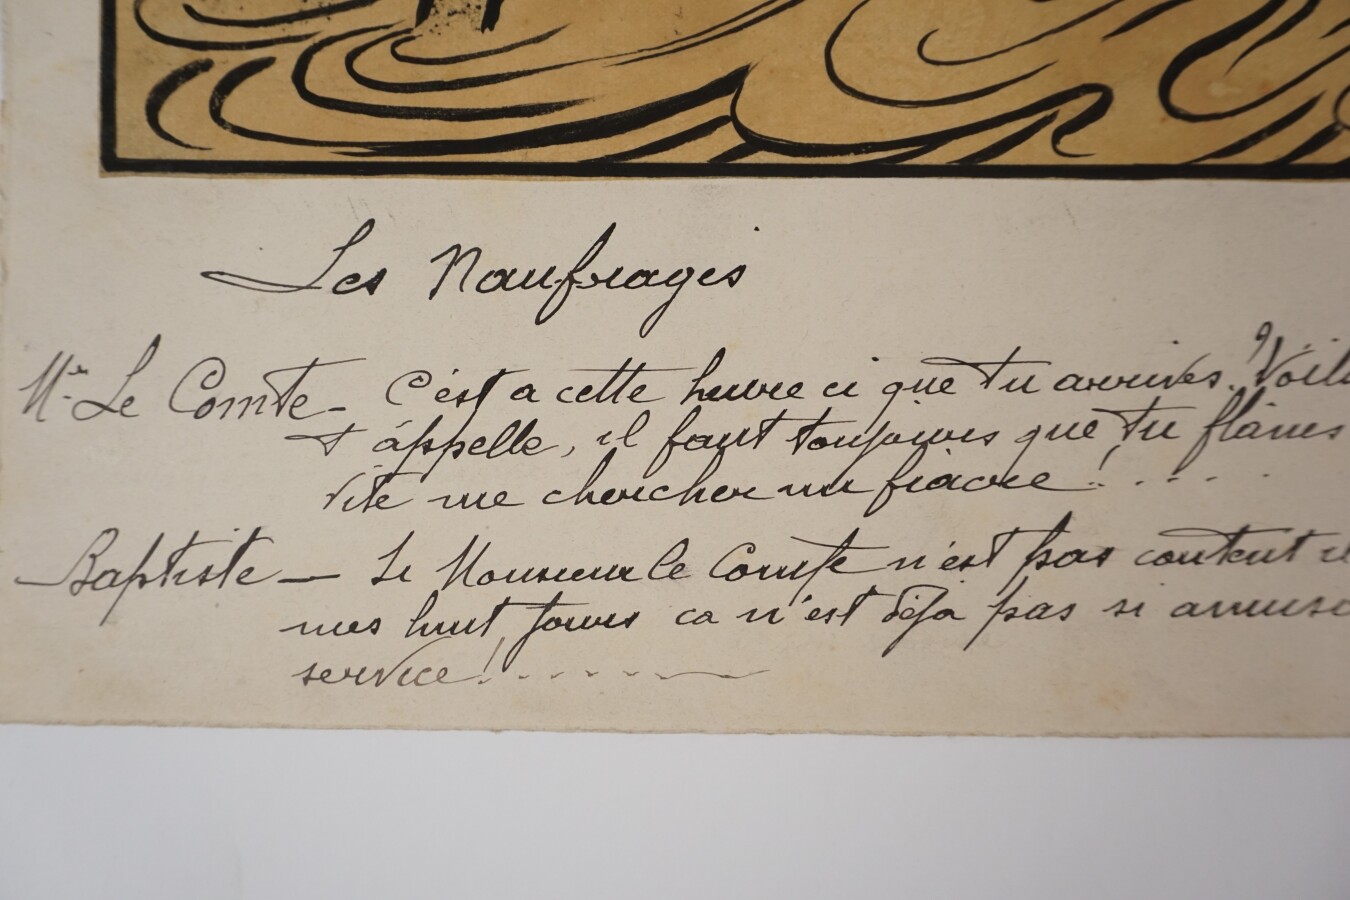 Les Naufrages
Mr Le Comte - C'est a cette heure ci que tu arrives? Voil
t'appelle, il faut toujours que tu flânes
Vite me chercher un fiacre!....
Baptiste — Si Monsieur le Comte n'est pas content
mes huit jours ca n'est déja pas si amusa
service!......